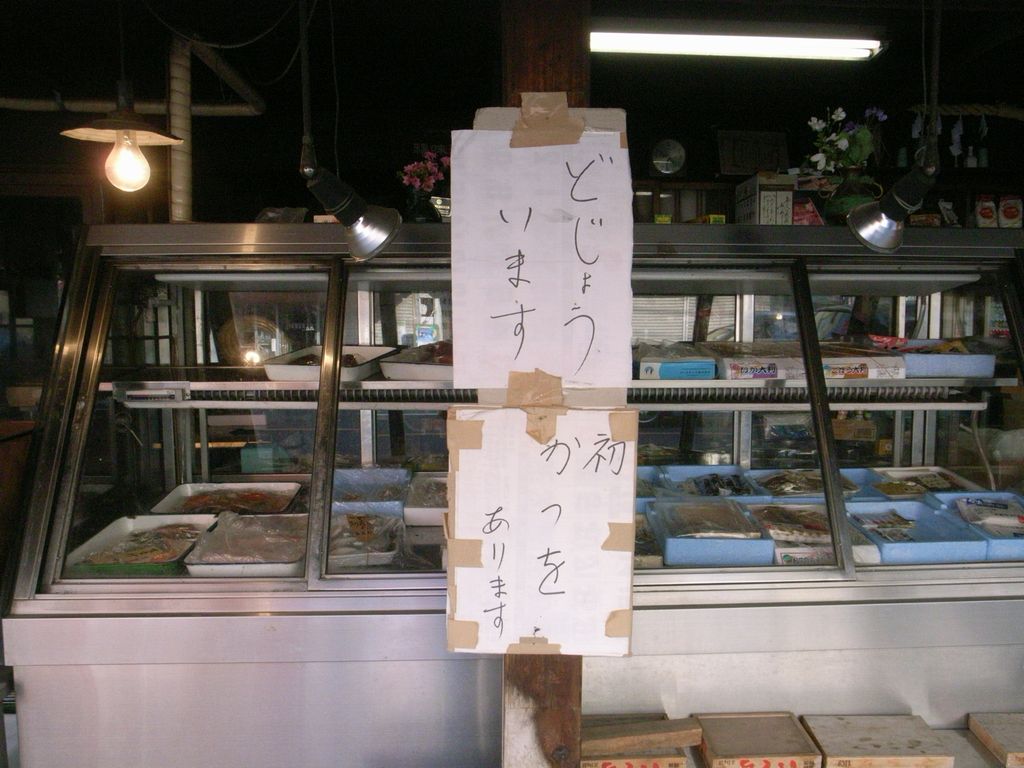 どじょう
います
初
かつを
あります